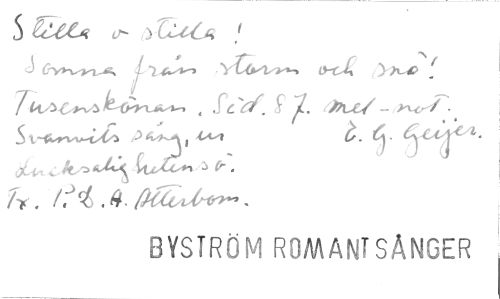 Stilla o stilla!
Somna från storm och snö!
Tusenskönan. Sid. 87. mel-not.
Svanvits sång, ur E. G. Geijer.
Lucksalighetens ö.
Tx. P. D. A. Atterbom.
BYSTRÖM ROMANT SÅNGER